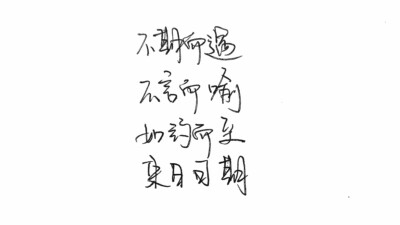 不期而遇
不言而喻
如约而至
来日可期